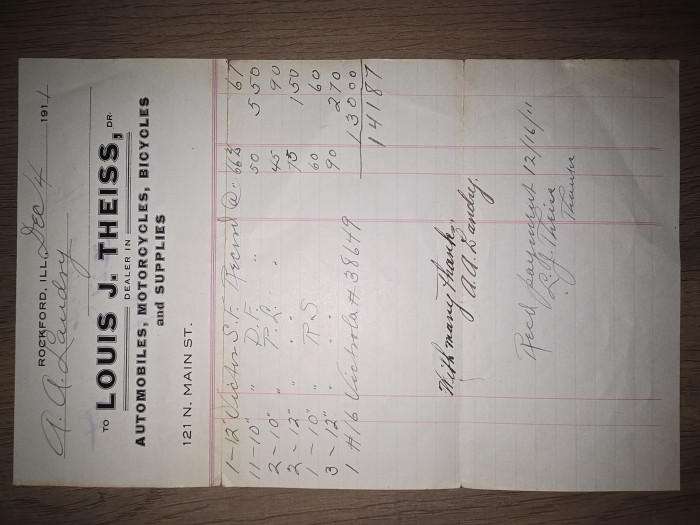 ROCKFORD, ILL., Dec 4 1911
A. A. Landry
TO LOUIS J. THEISS, DR.
DEALER IN
AUTOMOBILES, MOTORCYCLES, BICYCLES
and SUPPLIES
121 N. MAIN ST.
1-12" Victor S.F. Record @ .. 66⅔ 67
11-10" " D.F. " 50 5 50
2-10" " P.L. " 45 90
2-12" " " " 75 1 50
1-10" " R S 60 60
3-12" " " " 90 2 70
1 #16 Victrola # 38649 130 00
141 87
With many thanks,
A. A. Landry.
Recd payment 12/16/11
L. J. Theiss
Thanks